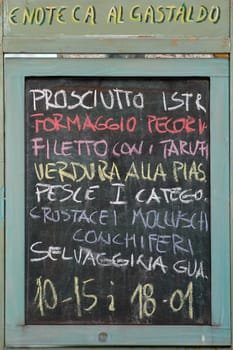 ENOTECA AL GASTALDO
PROSCIUTTO ISTR
FORMAGGIO PECORI
FILETTO CON I TARUFI
VERDURA ALLA PIAS
PESCE I CATEGO.
CROSTACEI MOLLUSCH
CONCHIFERI
SELVAGGINA GUA.
10-15 i 18-01